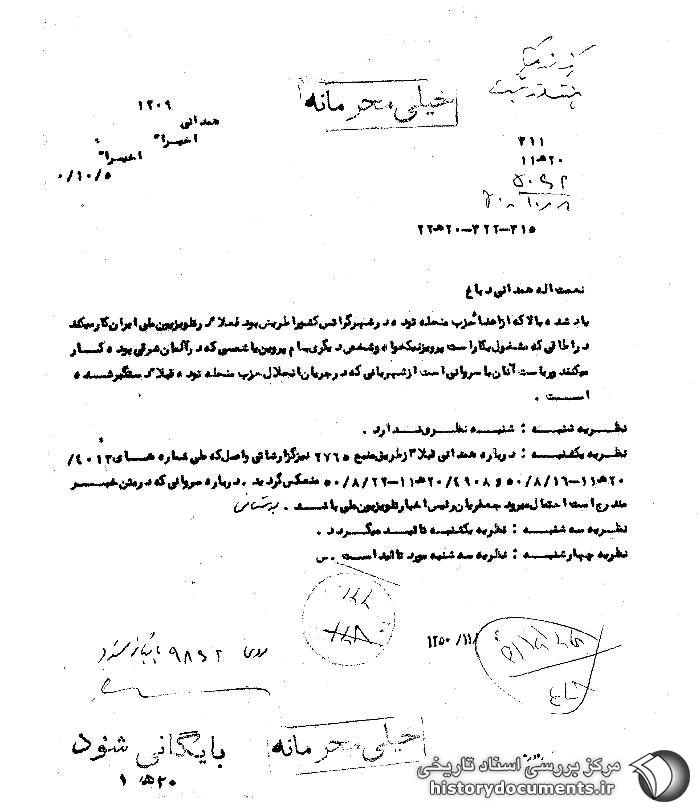 خیلی محرمانه
۱۲۰۹
همدانی
اخیراً
اخیراً
۰/۱۰/۵
۳۱۱
۲۰ھ۱۱
۳۱۵-۳۲۲-۲۰ھ۲۲
نعمت اله همدانی دباغ
یاد شده بالا که از اعضاء حزب منحله توده در شهر گرا تس کشور اطریش بود فعلا در تلویزیون ملی ایران کار میکند
در اطاقی که مشغول بکار است پرویز نیکخواه و شخص دیگری بنام پروین با شخصی که در آلمان شرقی بوده کار
میکنند و ریاست آنان با سروانی است از شهربانی که در جریان انحلال حزب منحله توده قبلا دستگیر شده
است .
نظریه شنبه : شنبه نظری ندارد .
نظریه یکشنبه : درباره همدانی قبلا از طریق منبع ۲۷۶۵ نیز گزارشاتی واصل که طی شماره های ۴۰۱۲/
۲۰ھ۱۱-۵۰/۸/۱۶ و ۴۹۰۸/۲۰ھ۱۱-۵۰/۸/۲۲ منعکس گردید . درباره سروانی که در متن خبر
مندرج است احتمال میرود جعفریان رئیس اخبار تلویزیون ملی باشد .
نظریه سه شنبه : نظریه یکشنبه تائید میگردد .
نظریه چهارشنبه : نظریه سه شنبه مورد تائید است . س
۱۲۵۰/۱۱/
خیلی محرمانه
بایگانی شود
۲۰ھ ۱
مرکز بررسی اسناد تاریخی
historydocuments.ir